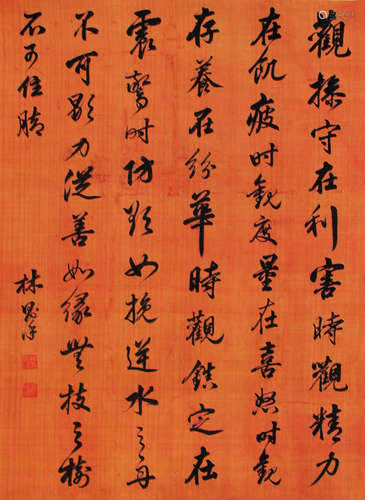 觀操守在利害時觀精力
在飢疲时觀度量在喜怒时觀
存養在紛華時觀鎮定在
震驚时仿欲如挽逆水之舟
不可歇力從善如緣無枝之樹
不可住腳
林則徐